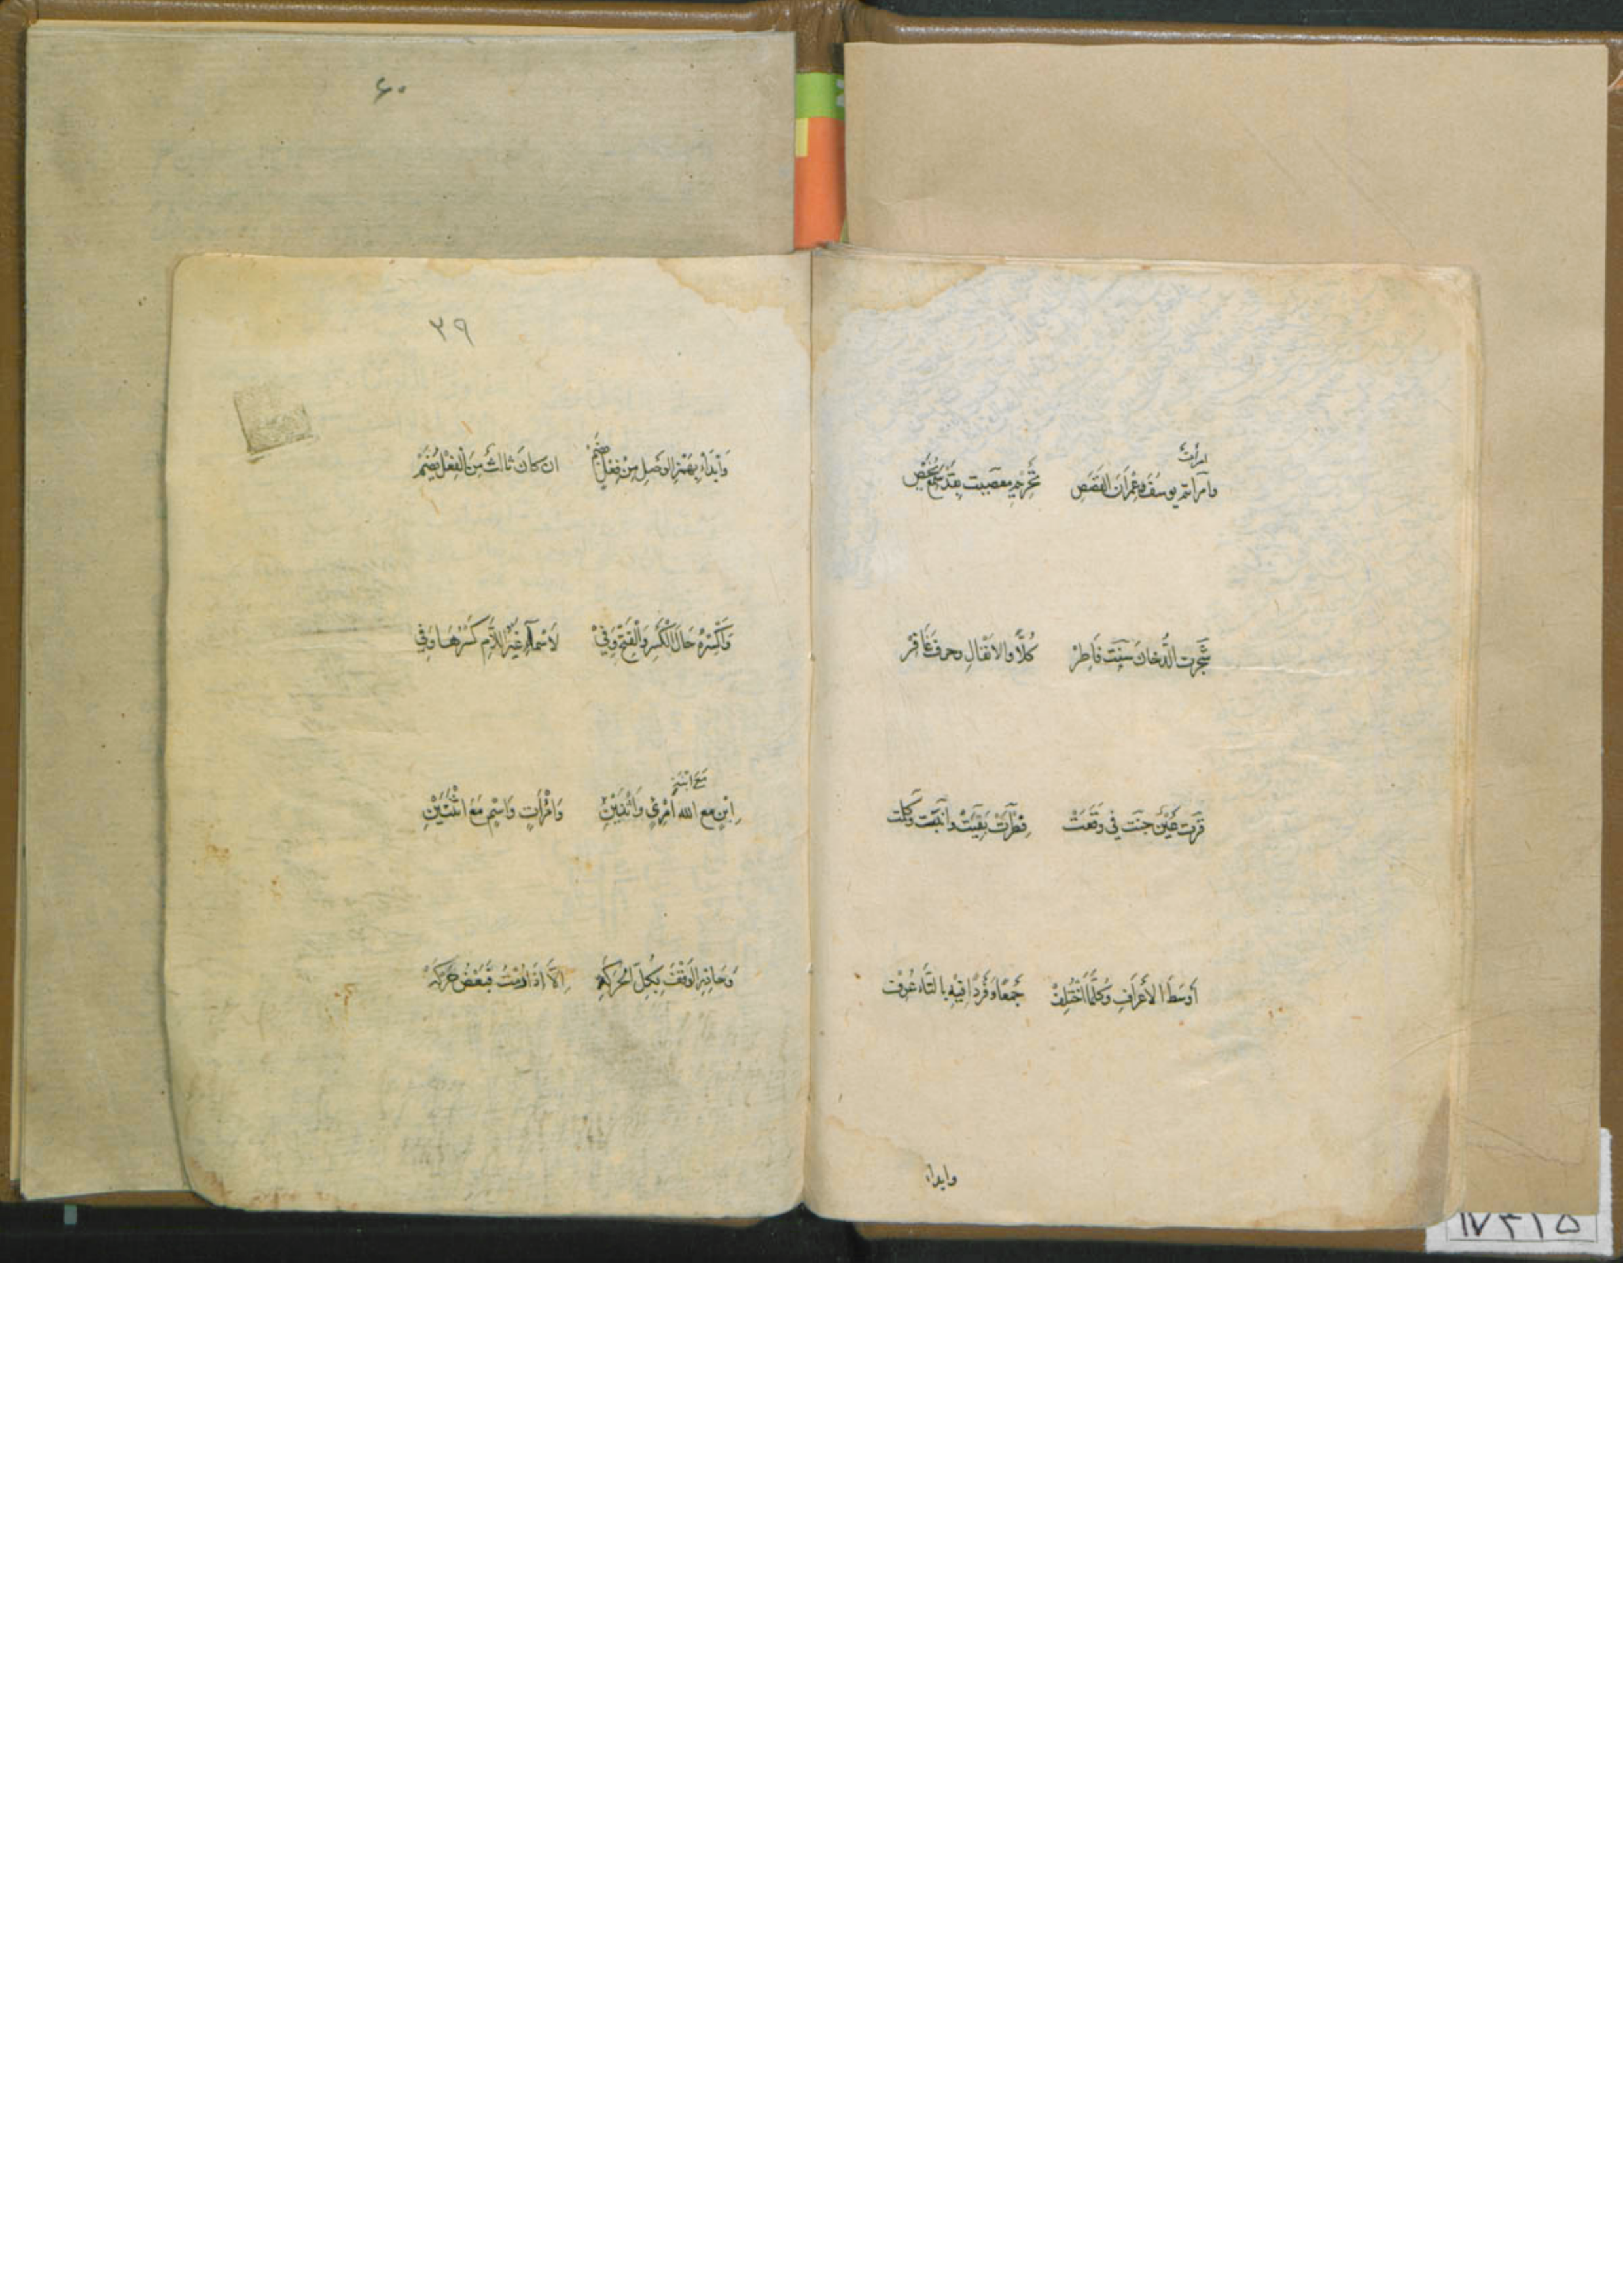 امرأت
وامرأت يوسف وعمران القصص تحريم معصيت بقد سمع يخص
شجرت الدخان سنت فاطر كلا والانفال وحرف غافر
قرت عين جنت في وقعت فطرت بقيت وابنت وكلت
أوسط الأعراف وكلما اختلف جمعا وفردا فيه بالتاء عرفت
وابداء
۶۰
۳۹
وابداء بهمز الوصل من فعل بضم ان كان ثالث من الفعل يضم
واكسره حال الكسر والفتح وفي لاسماء غير اللام كسرها وفي
مع ابنة
ابن مع امرئ واثنين وامرأت واسم مع اثنتين
وحاذر الوقف بكل الحركة الا اذا رمت فبعض حركه
۱۷۳۱۵